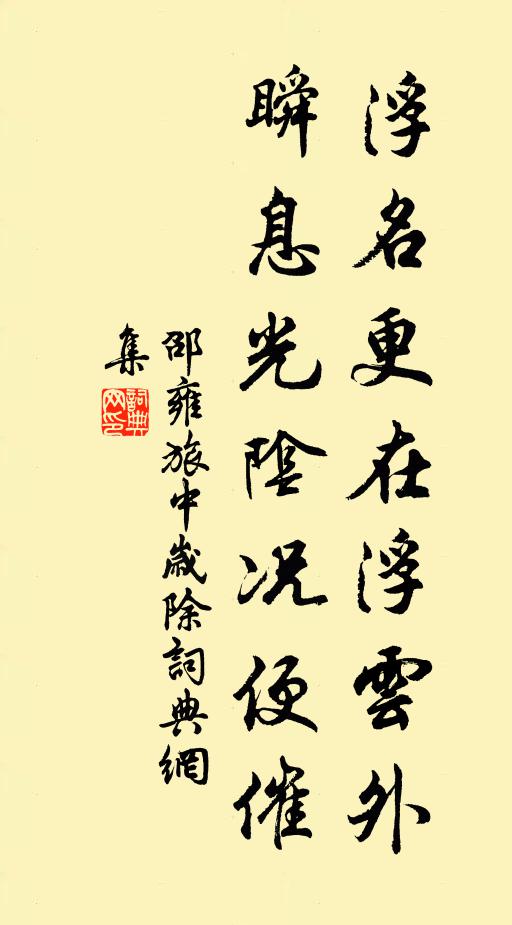 浮名更在浮雲外
瞬息光陰况便催
邵雍旅中歲除詞典網
集
詞典
网印